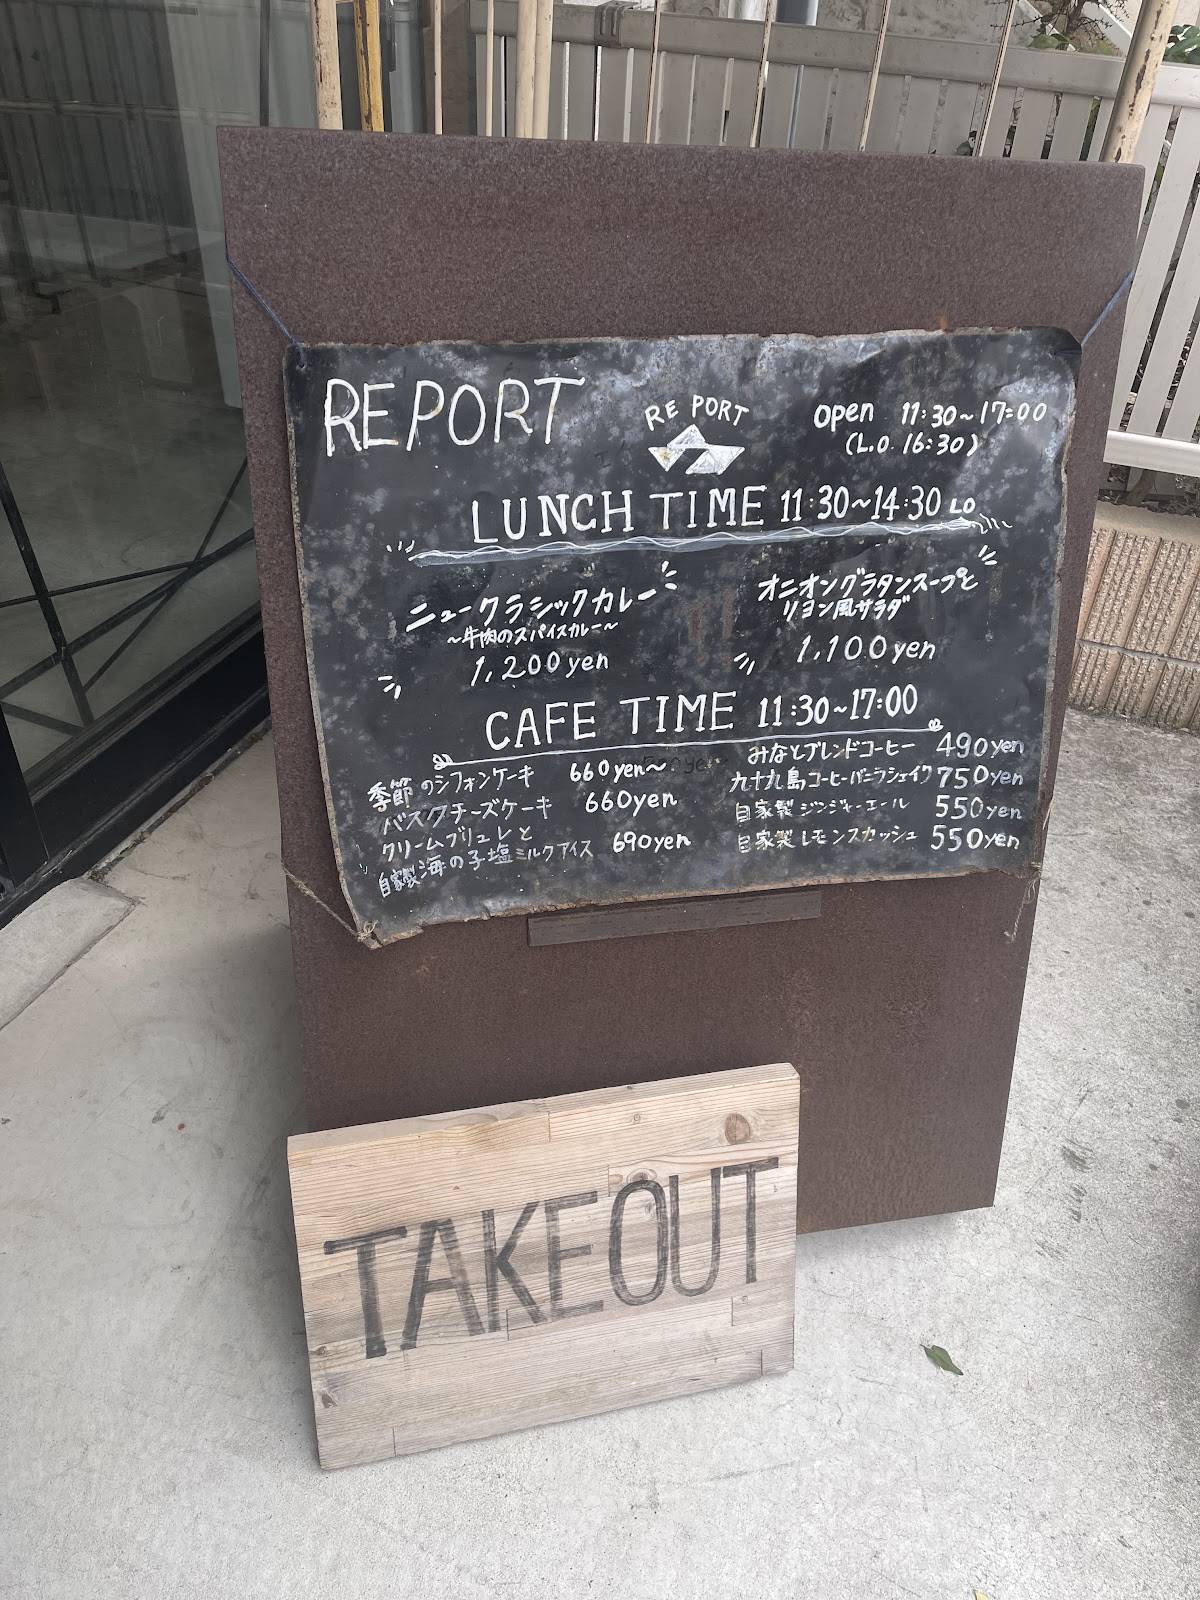 REPORT
RE PORT
open 11:30~17:00
(L.O. 16:30)
LUNCH TIME 11:30~14:30 LO
ニュークラシックカレー
~牛肉のスパイスカレー~
1,200yen
オニオングラタンスープと
リヨン風サラダ
1,100yen
CAFE TIME 11:30~17:00
季節のシフォンケーキ 660yen~
バスクチーズケーキ 660yen
クリームブリュレと
自家製海の子塩ミルクアイス 690yen
みなとブレンドコーヒー 490yen
九十九島コーヒーバニラシェイク 750yen
自家製ジンジャーエール 550yen
自家製レモンスカッシュ 550yen
TAKEOUT